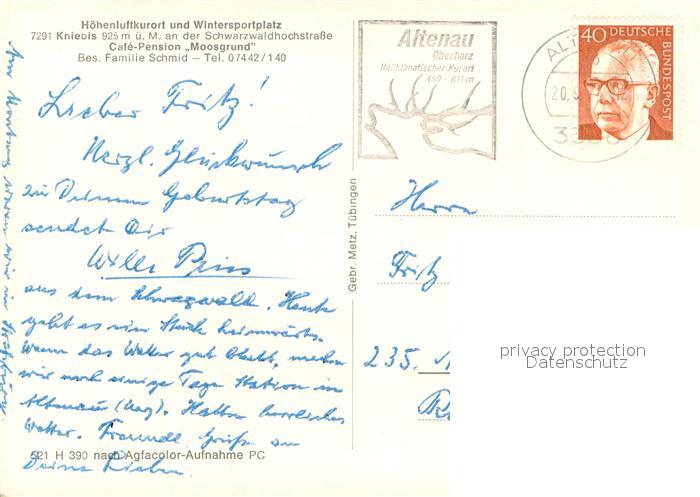 Höhenluftkurort und Wintersportplatz
7291 Kniebis 925 m ü. M. an der Schwarzwaldhochstraße
Café-Pension „Moosgrund"
Bes. Familie Schmid — Tel. 07442/140
Lieber Fritz!
Herzl. Glückwunsch
zu Deinem Geburtstag
sendet Dir
Willi
aus dem Schwarzwald. Heute
geht es ein Stück heimwärts.
Wenn das Wetter gut bleibt, machen
wir noch einige Tage Station in
Altenau (Harz). Hatten herrliches
Wetter. Freundl. Grüße an
Deine Lieben.
Am Montag waren wir in
521 H 390 nach Agfacolor-Aufnahme PC
Gebr. Metz, Tübingen
Altenau
Oberharz
Heilklimatischer Kurort
450 - 811 m
20.
40 DEUTSCHE
BUNDESPOST
Herrn
Fritz
235.
privacy protection
Datenschutz